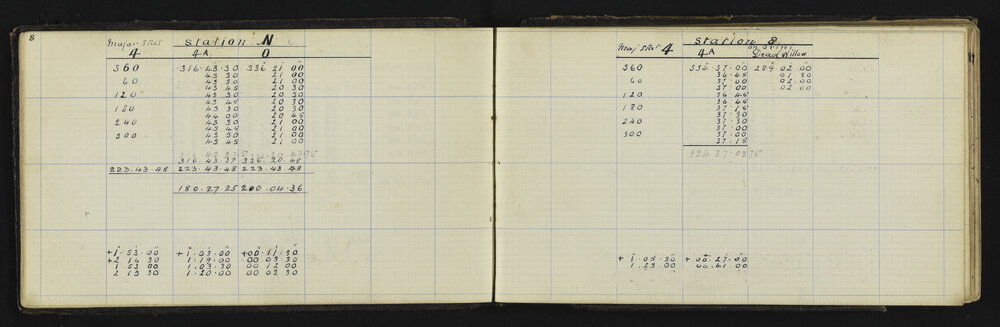 8
Major Stat station N
4 4A O
360 316.43.30 336 21 00
43 30 21 00
60 43 30 21 00
43 45 20 30
120 43 30 20 30
43 45 20 30
180 43 30 20 30
44 00 20 45
240 43 30 21 00
43 45 21 00
300 43 30 21 00
43 45 21 00
316.43.37 326.20.48
223.43.48 223.43.48 223.43.48
180.27.25 200.04.36
+1.53.00 +1.03.00 +00.11.30
+2 14 30 1.19.00 00 03 30
1 53 00 1.03.30 00 12 00
2 13 30 1.20.00 00 02 30
Maj Stat 4 station 8
4A Dead Willow
360 334.37.00 289 02 00
36.45 01 30
60 37.00 02.00
37.00 02 00
120 36 45
36 45
180 37.15
37.30
240 37.30
37.00
300 37.00
37.15
334 37.03.75
+1.05.30 +00.27.00
1.23.00 00.41.00